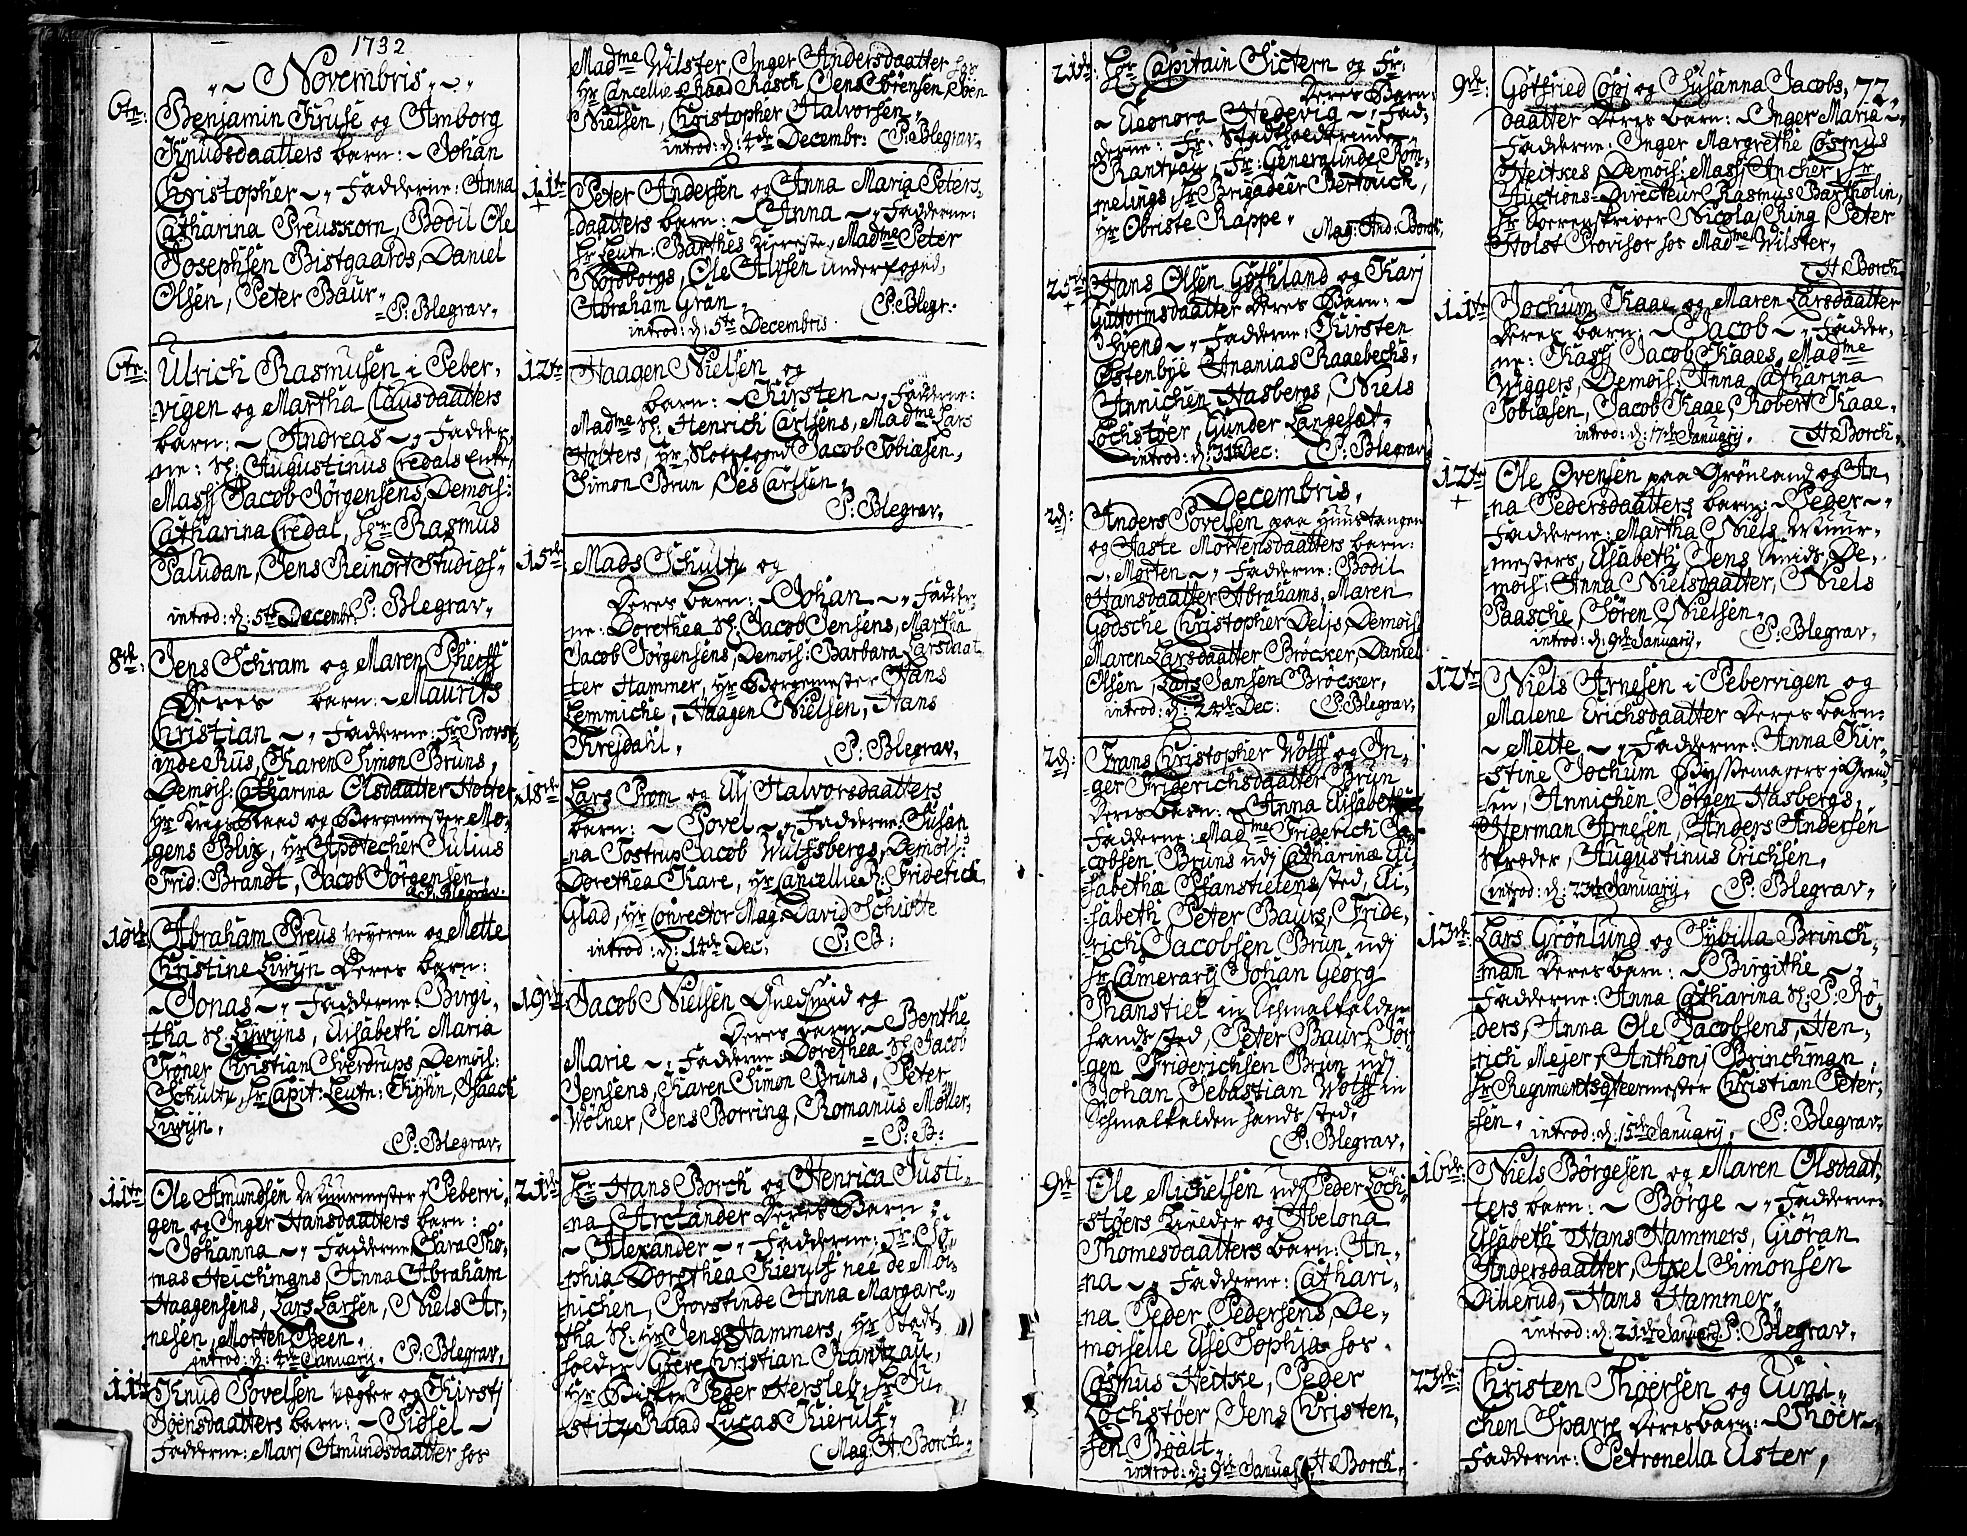 1732
Novembris
6te: Benjamin Kruse og Amborg
Knudsdaatters barn: Johan
Christopher Fadderne: Anna
Catharina Preuskorn, Bodil Ole
Josephsen Bistgaards, Daniel
Olsen, Peter Baur
P: Blegrav.
6te: Ulrich Rasmusen i Peber-
vigen og Martha Clausdaatters
barn: Andreas Fadder-
ne: Sl: Augustinus Credals Enke,
Mass Jacob Jørgensens, Demois:
Catharina Credal, Hr Rasmus
Paludan, Jens Reinort Studios:
introd: d: 5te Decembr. P: Blegrav.
8de: Jens Schram og Maren Thieff
Deres barn: Maurits
Christian Fadderne: Fr Provst-
inde Rüs, Karen Simon Bruns,
Demois: Catharina Olsdaatter Holter
Hr Krigs Raad og Borgemester Mo-
gens Blix, Hr Apotecher Julius
Frid: Brandt, Jacob Jørgensen
P: Blegrav.
10de: Abraham Preus Veyeren og Mette
Christine Liwyn Deres barn:
Jonas Fadderne: Birgi-
tha Sl: Liwyns, Elisabeth Maria
Trøner Christian Sverdrups, Demois:
Schultz, Hr Capit: Leutn: Kyhn, Isaach
Liwyn.
P: Blegrav.
11te Ole Amundsen Muurmester i Pebervi-
gen og Inger Hansdaatters barn:
Johanna Fadderne: Sara Tho-
mas Heichmans, Anna Abraham
Haagensens, Lars Larsen, Niels Ar-
nesen, Morten Steen.
introd: d: 4de January. P: Blegrav.
11te Knud Povelsen Vægter og Kirsti
Joensdaatters barn: Sidsel
Fadderne: Mari Amundsdaatter hos
Madme Wilster, Inger Andersdaatter hos
Hr Cancellie Raad Rasch, Jens Sørensen, Sven
Nielsen, Christopher Halvorsen.
introd: d: 4de Decembr: P: Blegrav.
11te Peter Andersen og Anna Maria Peters-
daatters barn: Anna Fadderne:
Hr Leutn: Barthes Kiereste, Madme Peter
Nordborgs, Ole Alfsen Underfoged,
Abraham Gran.
introd: d: 5te Decembris. P: Blegr:
12te Haagen Nielsen og
barn: Kirsten Fadderne:
Madme Sl: Henrich Carlsens, Madme Lars
Holters, Hr Slotzfoged Jacob Tobiæsen,
Simon Brun, Jes Carlsen.
P: Blegrav.
15de: Mads Schultz og
Deres barn: Johan Fadder-
ne: Dorethea Sl: Jacob Jensens, Martha
Jacob Jørgensens, Demois: Barbara Larsdaat-
ter Hammer, Hr Borgemester Hans
Lemmiche, Haagen Nielsen, Hans
Krejdahl.
P: Blegrav.
18de Lars Prom og Elj Halvorsdaatters
barn: Povel Fadderne: Susan-
na Tostrup Jacob Wulfsbergs, Demois:
Dorethea Kare, Hr CancellieR: Friderich
Glad, Hr Conrector Mag: David Schiøtte
introd: d: 14de Dec: P: B:
19de Jacob Nielsen Guldsmid og
Deres barn: Benthe
Marie Fadderne: Dorethea Sl: Jacob
Jensens, Karen Simon Bruns, Peter
Wölner, Jens Borring, Romanus Møller,
P: B:
21de: Hr Hans Borch og Henrica Justi-
na Arctander Deres Barn:
Alexander Fadderne: Fr: So-
phia Dorethea Kierulf née de Moi-
nichen, Provstinde Anna Margare-
tha Sl: Hr Jens Hammers, Hr Stadt-
holder Greve Christian Rantzau,
Hr Biskop Peder Hersleb, Hr Ju-
stitz Raad Lucas Kierulf.
Mag: H: Borch.
21de: Hr Capitain Sictern og Fr:
Deres Barn:
Eleonora Hedevig Fad-
derne: Fr: Stadtholderinde
Rantzau, Fr: Generalinde Rom-
melings, Hr Brigadeur Bertouch,
Hr Obriste Rappe.
Mag: And: Borch.
25de Hans Olsen Gothland og Kari
Guttormsdaatter Deres Barn:
Svend Fadderne: Kirsten
Østenbye Ananias Raaebechs,
Annichen Hasbergs, Niels
Lochstøer, Gunder Langesæt.
introd: d: 31te Dec: P: Blegrav.
Decembris.
2d: Anders Povelsen paa Huustangen
og Aaste Mortensdaatters barn:
Morten Fadderne: Bodil
Hansdaatter Abrahams, Maren
Godsche Christopher Delfs, Demois:
Maren Larsdaatter Brøcker, Daniel
Olsen, Lars Jansen Brøcker.
introd: d: 24de Dec: P: Blegrav.
2d: Frans Christopher Wolff og In-
ger Friderichsdaatter Brun
Deres Barn: Anna Elisabeth
Fadderne: Madme Friderich Ja-
cobsen Bruns udj Catharinæ Eli-
sabethæ Pfanstielens sted, Eli-
sabeth Peter Baurs, Fride-
rich Jacobsen Brun udj
Hr Camerarij Johan Georg
Phanstiel in Schmalkalden
hands sted, Peter Baur, Jør-
gen Friderichsen Brun udj
Johan Sebastian Wolff in
Schmalkalden hands sted.
P: Blegrav.
9de Ole Michelsen udj Peder Loch-
støers Kielder og Abelona
Thomesdaatters barn: An-
na Fadderne: Cathari-
na Peder Pedersens, De-
moiselle Else Sophia hos
Cosmus Heitske, Peder
Lochstøer, Jens Christen-
sen Bøält.
introd: d: 9de Januar. H: Borch.
72.
9de: Gotfried Copj og Susanna Jacobs-
daatter Deres barn: Inger Maria
Fadderne: Inger Margrethe Cosmus
Heitskes, Demois: Mass Ancher, Hr
Auctions-Directeur Rasmus Bartholin,
Hr Sorenskriver Nicolaj Ring, Peter
Holst Provisor hos Madme Wilster.
H: Borch
11te Jochum Kaae og Maren Larsdaatter
Deres barn: Jacob Fadder-
ne: Kass Jacob Kaaes, Madme
Wiggers, Demois: Anna Catharina
Tobiæsen, Jacob Kaae, Robert Kaae.
introd: d: 17de January. H: Borch.
12te Ole Ovensen paa Grønland og An-
na Pedersdaatters barn: Peder
Fadderne: Martha Niels Muur-
mesters, Elsabeth Jens Smids, De-
mois: Anna Nielsdaatter, Niels
Paasche, Søren Nielsen.
introd: d: 9de January. P: Blegrav.
12te Niels Arnesen i Pebervigen og
Malene Erichsdaatter Deres barn:
Mette Fadderne: Anna Kir-
stine Jochum Bøssemagers, Grend-
sen, Annichen Jørgen Hasbergs,
Herman Arnesen, Anders Andersen
Skræder, Augustinus Erichsen.
introd: d: 23de January. P: Blegrav.
13de: Lars Grønlund og Sybilla Brinck-
man Deres barn: Birgithe
Fadderne: Anna Catharina Sl: P: Rø-
ders, Anna Ole Jacobsens, Hen-
rich Mejer, Anthonj Brinchman,
Hr Regimentsqteermester Christian Peter-
sen.
introd: d: 15de January. P: Blegrav.
16de: Niels Børgesen og Maren Olsdaat-
ters barn: Børge Fadderne:
Elsabeth Hans Hammers, Giøran
Andersdaatter, Axel Simonsen
Dillerud, Hans Hammer.
introd: d: 21de January. P: Blegrav.
23de: Christen Thøersen og Euni-
chen Sparre Deres barn: Thøer
Fadderne: Petronella Elster,